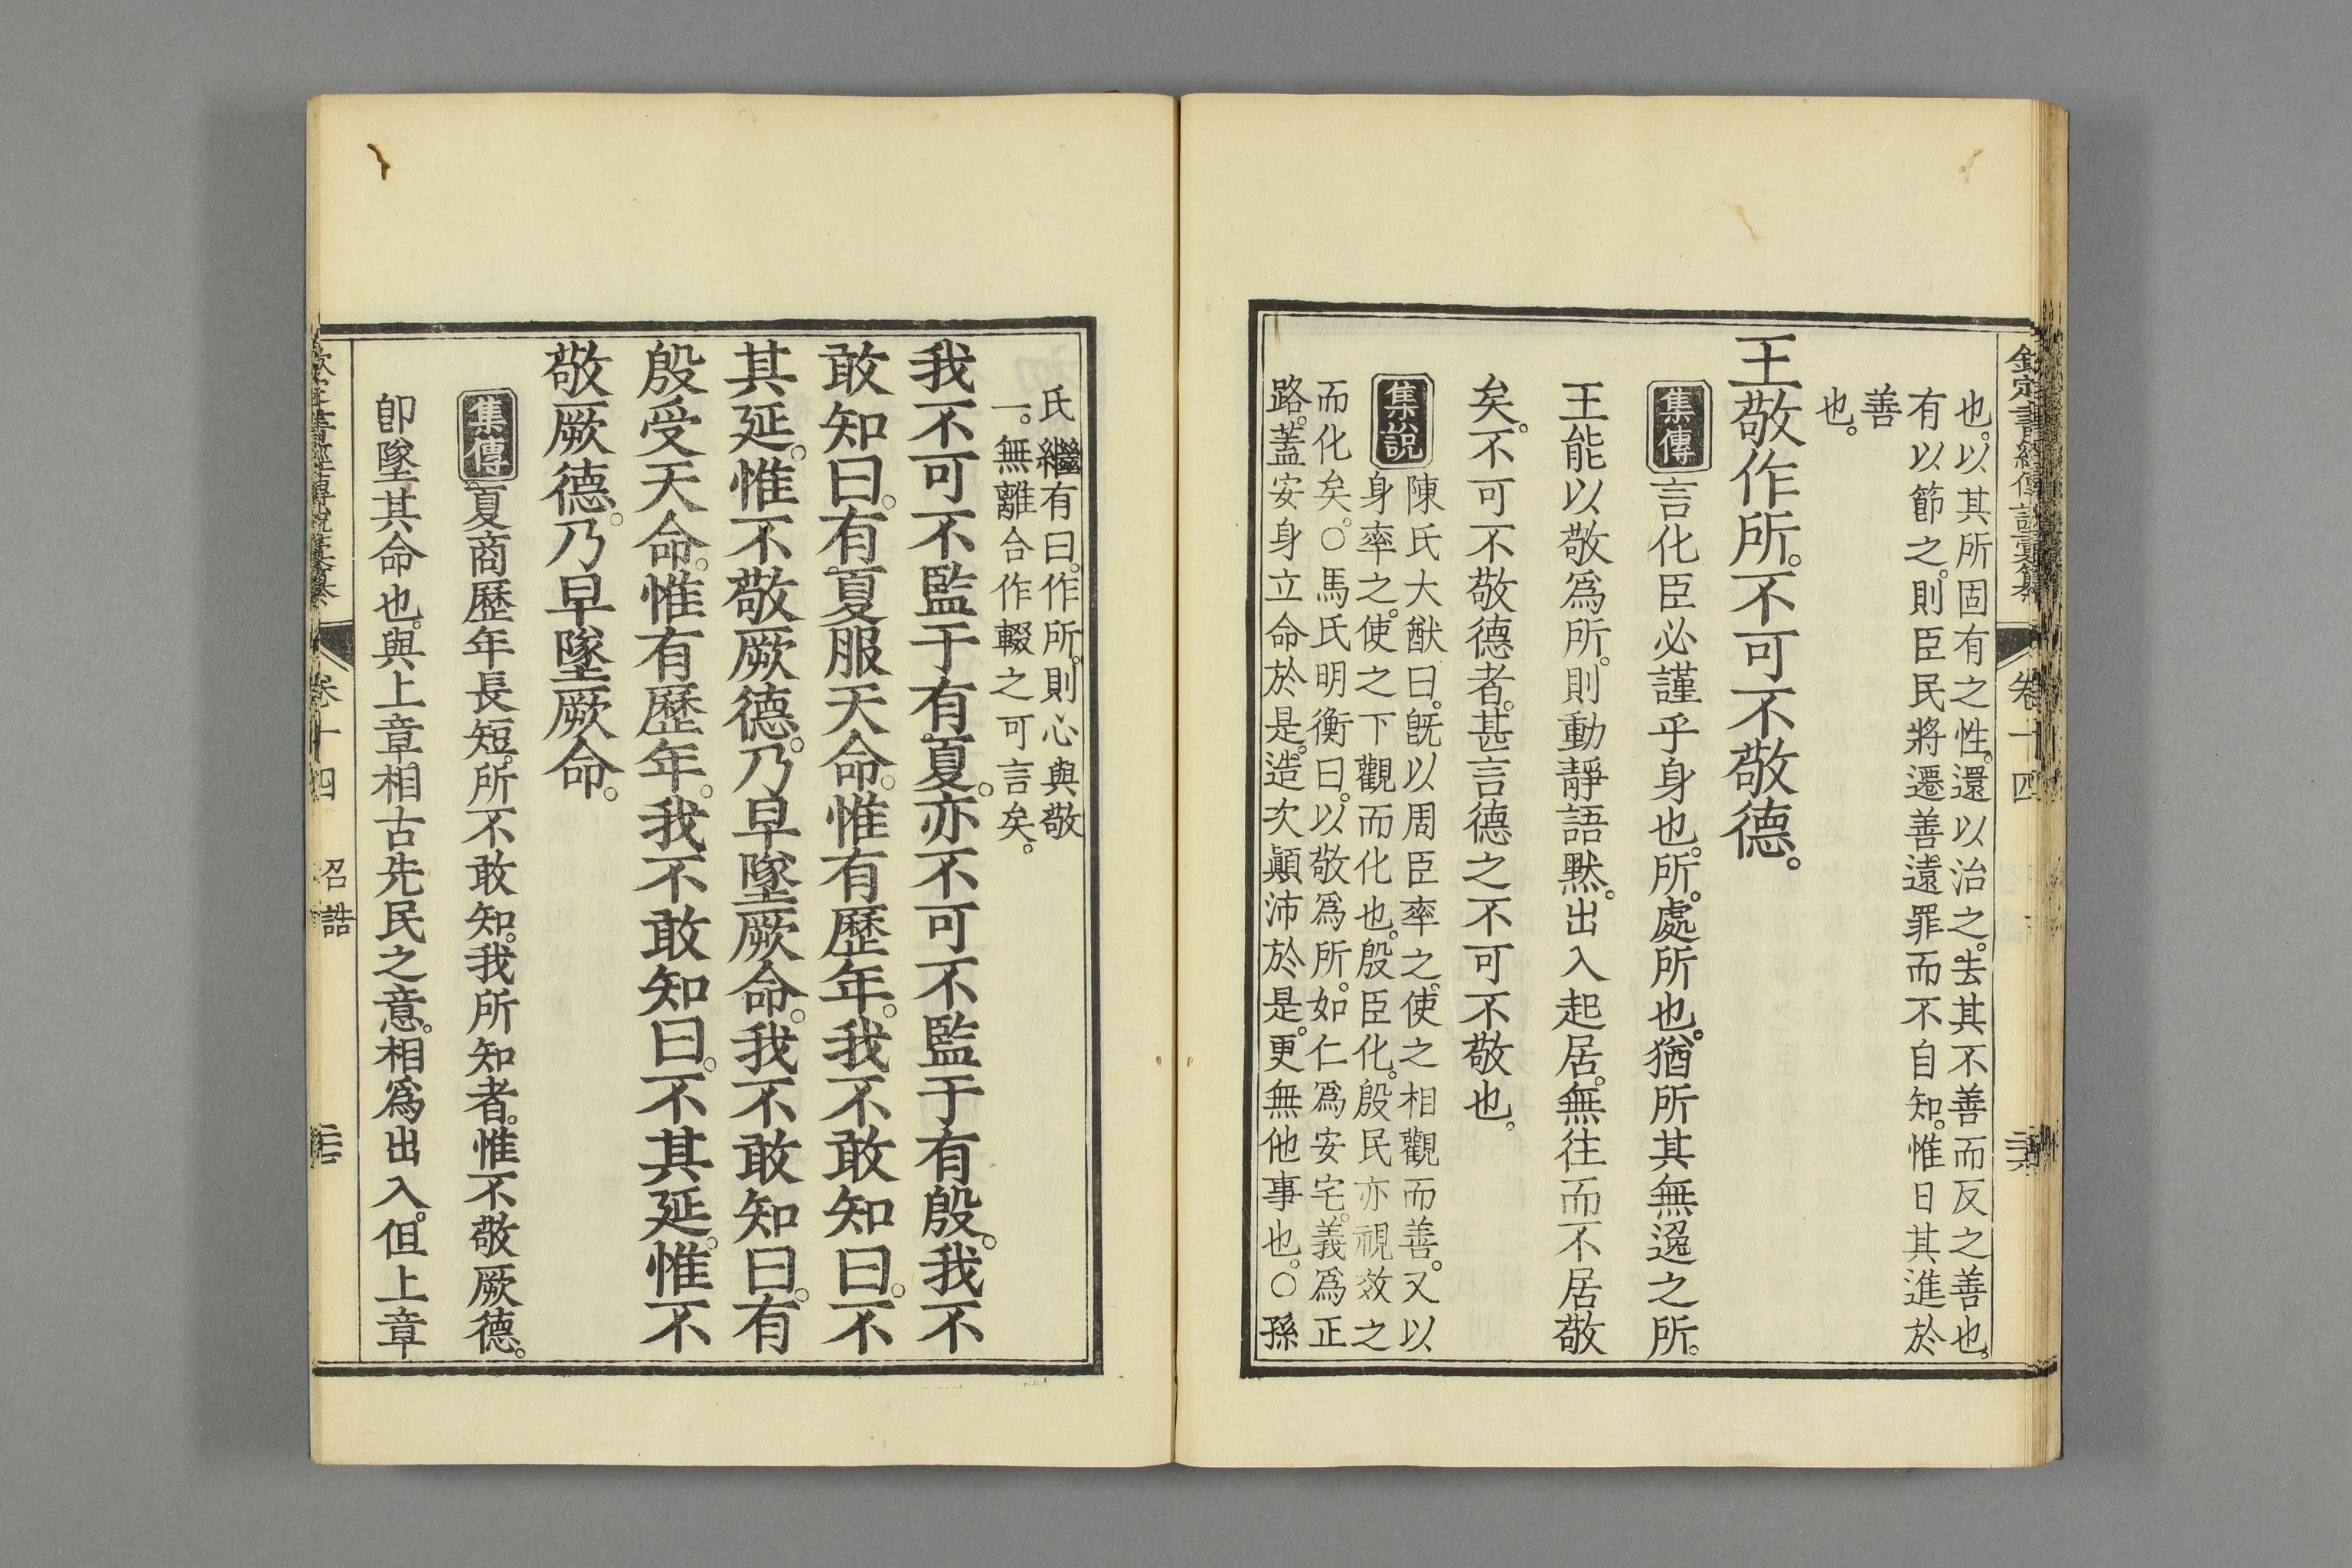 欽定書經傳說彙纂 卷十四
也。以其所固有之性。還以治之。去其不善而反之善也。
有以節之。則臣民將遷善遠罪而不自知。惟日其進於
善
也。
王敬作所。不可不敬德。
集傳 言化臣必謹乎身也。所。處所也。猶所其無逸之所。
王能以敬爲所。則動靜語默。出入起居。無往而不居敬
矣。不可不敬德者。甚言德之不可不敬也。
集說 陳氏大猷曰。旣以周臣率之。使之相觀而善。又以
身率之。使之下觀而化也。殷臣化。殷民亦視效之
而化矣。○馬氏明衡曰。以敬爲所。如仁爲安宅。義爲正
路。蓋安身立命於是。造次顚沛於是。更無他事也。○孫
氏繼有曰。作所。則心與敬
一。無離合作輟之可言矣。
我不可不監于有夏。亦不可不監于有殷。我不
敢知曰。有夏服天命。惟有歷年。我不敢知曰。不
其延。惟不敬厥德。乃早墜厥命。我不敢知曰。有
殷受天命。惟有歷年。我不敢知曰。不其延。惟不
敬厥德。乃早墜厥命。
集傳 夏商歷年長短。所不敢知。我所知者。惟不敬厥德。
卽墜其命也。與上章相古先民之意。相爲出入。但上章
欽定書經傳說彙纂 卷十四 召誥